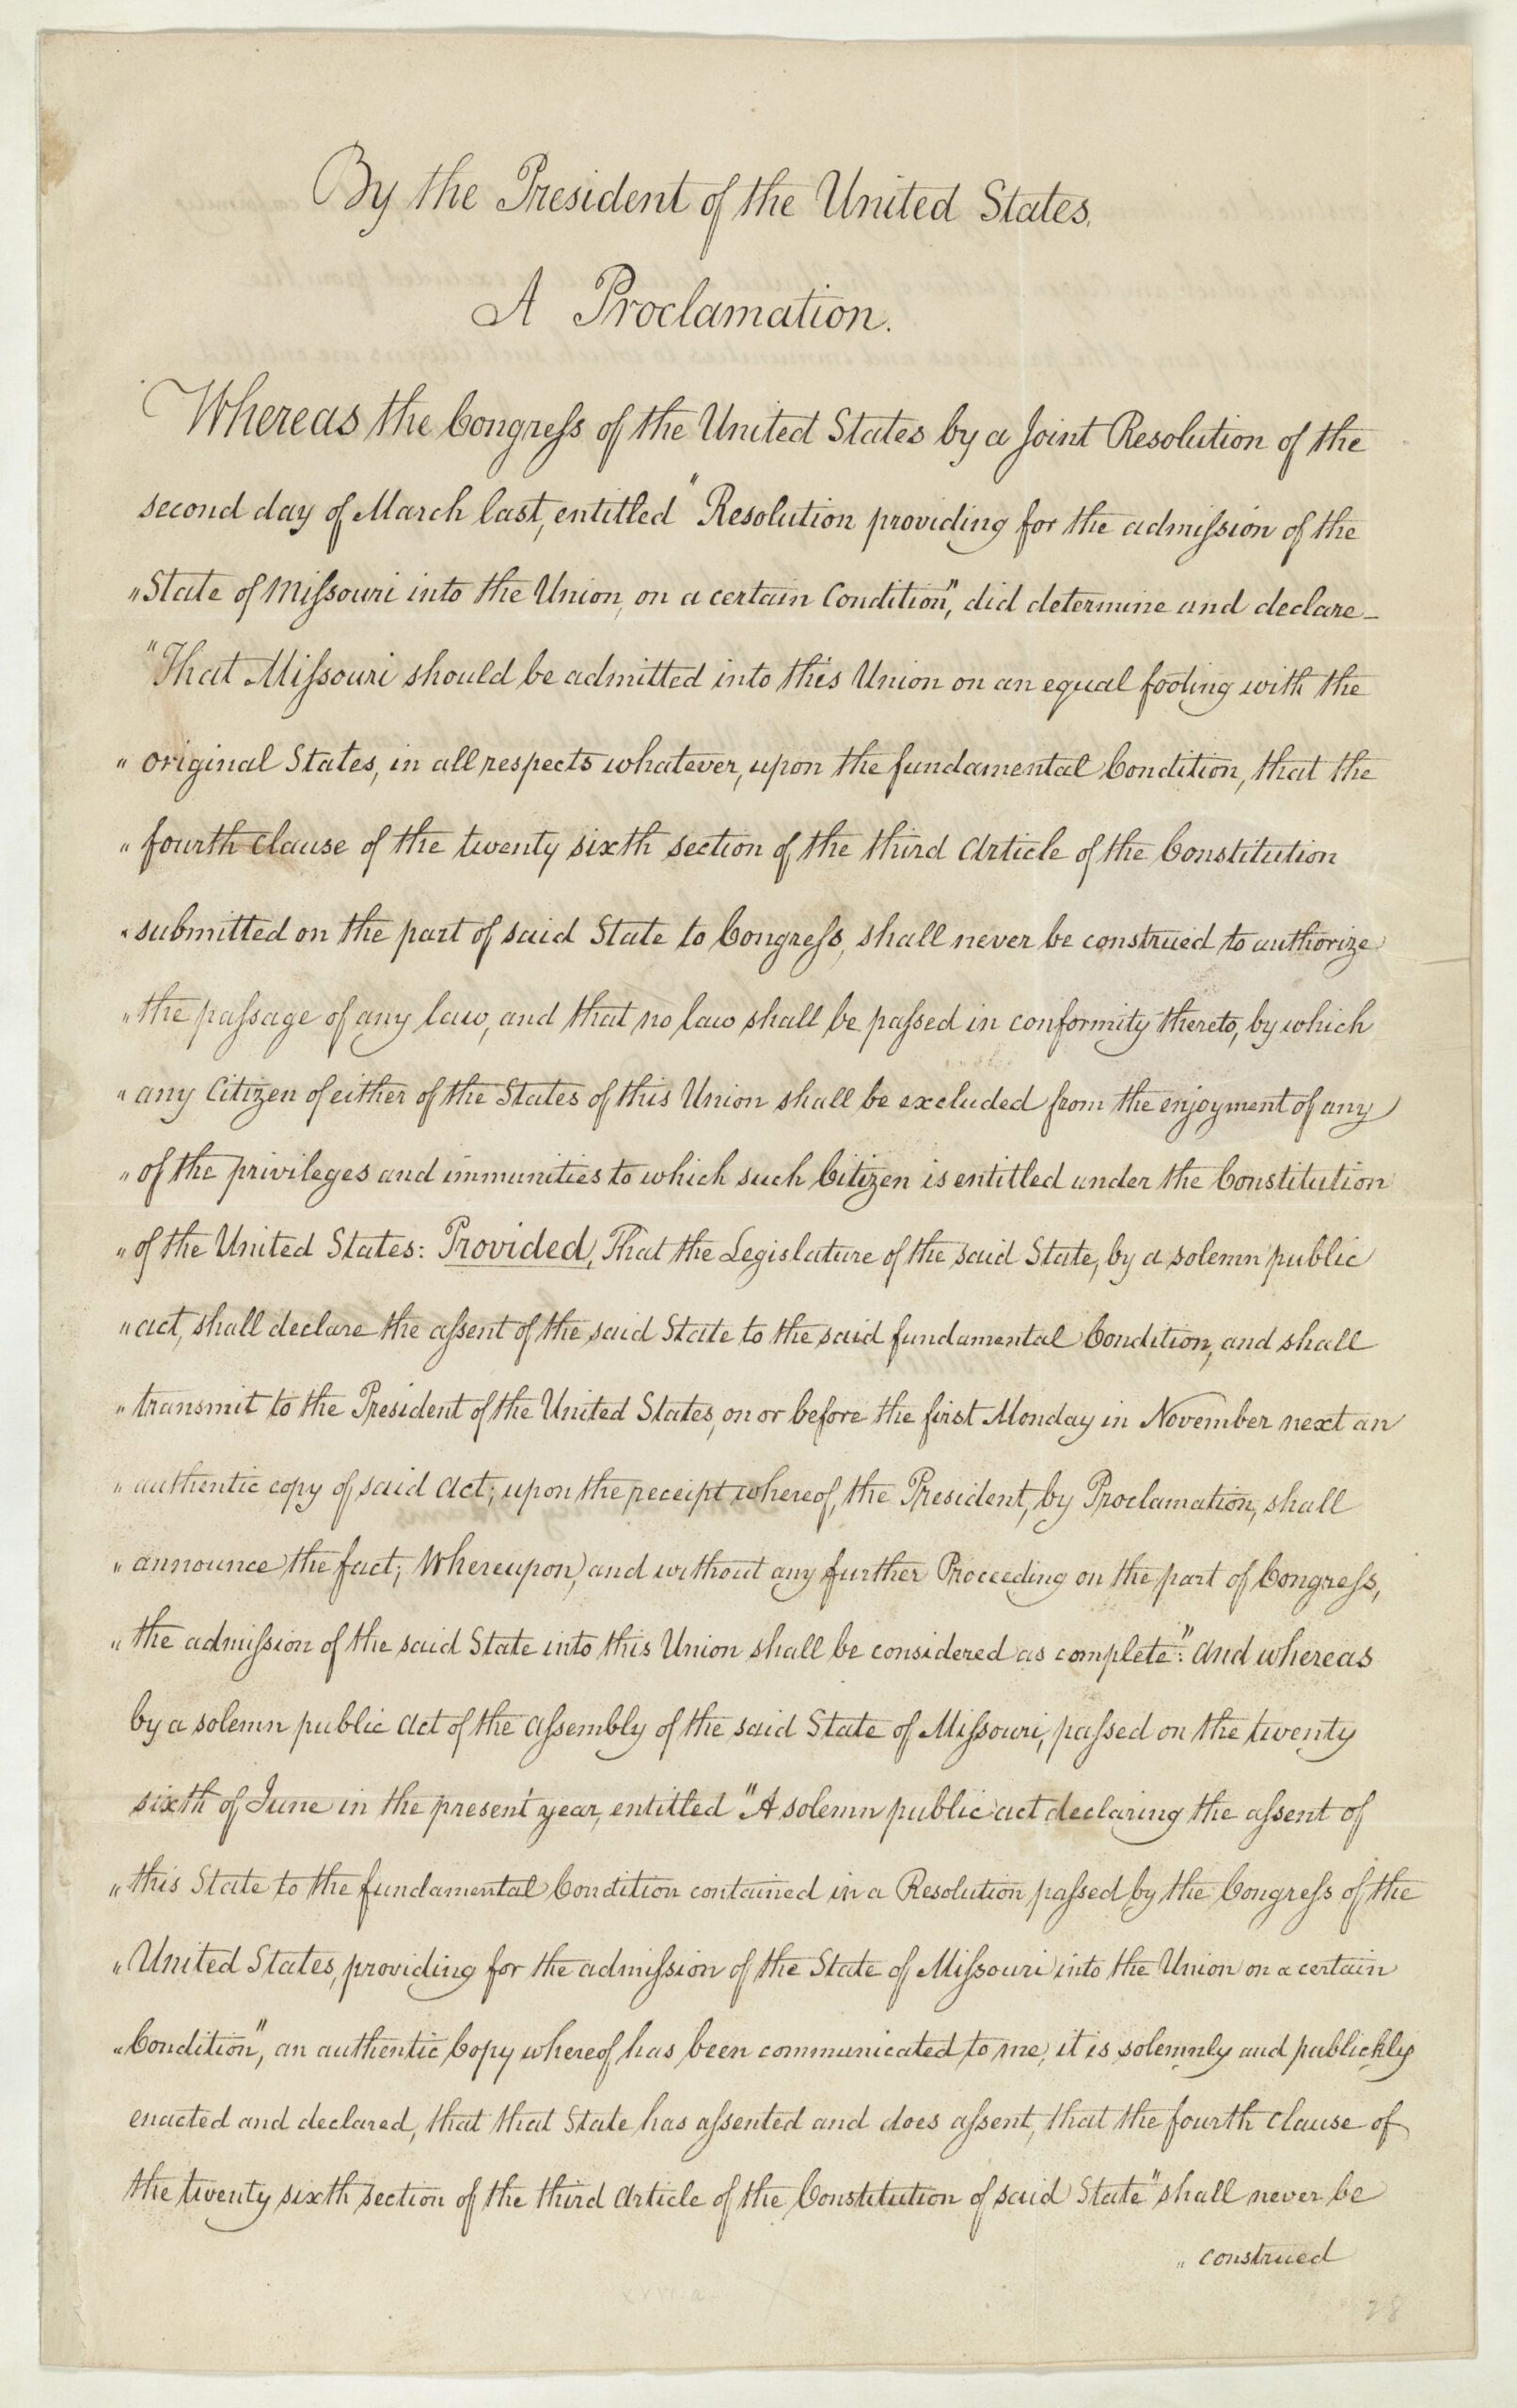 By the President of the United States.
A Proclamation.
Whereas the Congreſs of the United States by a Joint Resolution of the
second day of March last, entitled "Resolution providing for the admiſsion of the
"State of Miſsouri into the Union, on a certain Condition", did determine and declare—
"That Miſsouri should be admitted into this Union on an equal footing with the
"original States, in all respects whatever, upon the fundamental Condition, that the
"fourth clause of the twenty sixth section of the third Article of the Constitution
"submitted on the part of said State to Congreſs, shall never be construed to authorize
"the paſsage of any law, and that no law shall be paſsed in conformity thereto, by which
"any Citizen of either of the States of this Union shall be excluded from the enjoyment of any
"of the privileges and immunities to which such Citizen is entitled under the Constitution
"of the United States: Provided, That the Legislature of the said State, by a solemn public
"act, shall declare the aſsent of the said State to the said fundamental Condition, and shall
"transmit to the President of the United States, on or before the first Monday in November next an
"authentic copy of said Act; upon the receipt whereof, the President, by Proclamation, shall
"announce the fact; Whereupon, and without any further Proceeding on the part of Congreſs,
"the admiſsion of the said State into this Union shall be considered as complete": And whereas
by a solemn public Act of the Aſsembly of the said State of Miſsouri, paſsed on the twenty
sixth of June in the present year, entitled "A solemn public act declaring the aſsent of
"this State to the fundamental Condition contained in a Resolution paſsed by the Congreſs of the
"United States, providing for the admiſsion of the State of Miſsouri into the Union on a certain
"Condition", an authentic Copy whereof has been communicated to me, it is solemnly and publickly
enacted and declared, that that State has aſsented and does aſsent, that the fourth clause of
the twenty sixth section of the third Article of the Constitution of said State "shall never be
"construed
28